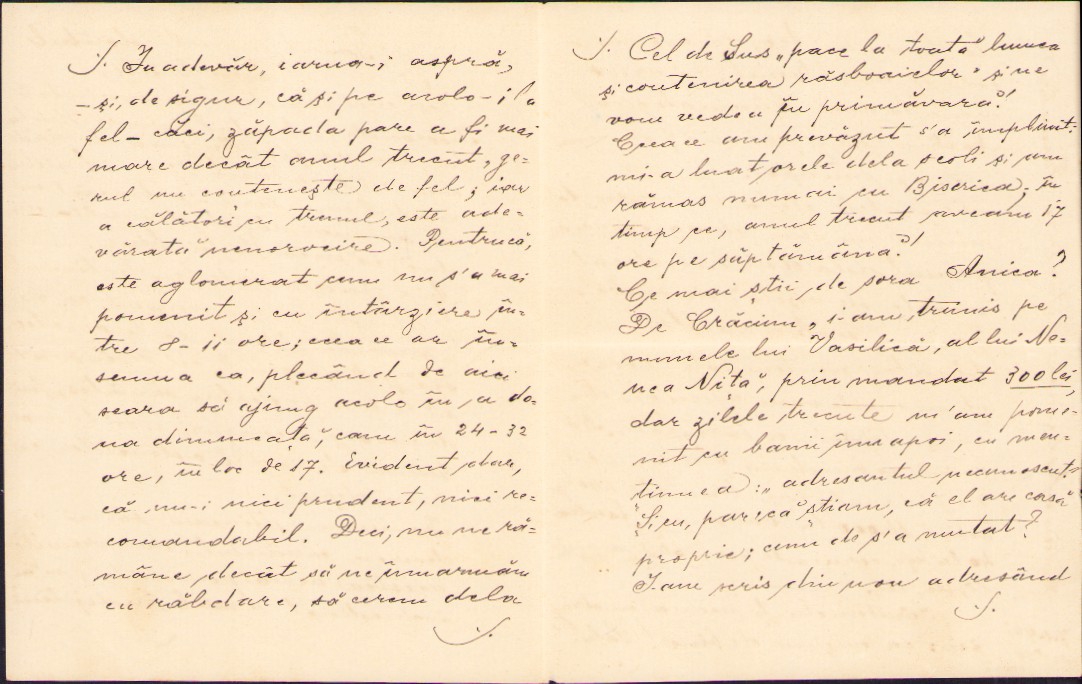 ./. In adevăr, iarna-i aspră,
- și, de sigur, că și pe acolo-i la
fel - căci, zăpada pare a fi mai
mare decât anul trecut, ge-
rul nu contenește de fel; iar
a călători cu trenul, este ade-
vărată nenorocire. Pentrucă,
este aglomerat cum nu s'a mai
pomenit și cu întârziere în-
tre 8-11 ore; ceeace ar în-
semna ca, plecând de aici
seara să ajung acolo în a do-
ua dimineață, cam în 24-32
ore, în loc de 17. Evident dar,
că nu-i nici prudent, nici re-
comandabil. Deci, nu ne ră-
mâne decât să ne înmarmăm
cu răbdare, să cerem dela
./.
./. Cel de Sus „pace la toată" lumea
și contenirea răsboaielor" și ne
vom vedea în primăvară!
Ceeace am prevăzut s'a împlinit:
mi-a luat orele dela școli și am
rămas numai cu Biserica; în
timp ce, anul trecut aveam 17
ore pe săptămână!
Ce mai știi de sora Anica?
De Crăciun, i-am trimis pe
numele lui Vasilică, al lui Ne-
nea Niță, prin mandat 300 lei,
dar zilele trecute m'am pome-
nit cu banii înnapoi, cu men-
țiunea: „adresantul necunoscut."
Și eu, parecă știam, că el are casă
proprie; cum de s'a mutat?
I-am scris din nou adresând
./.